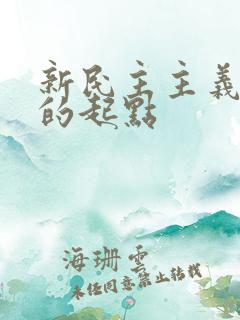 新民主主義
的起點
海珊雲
未經同意禁止轉載